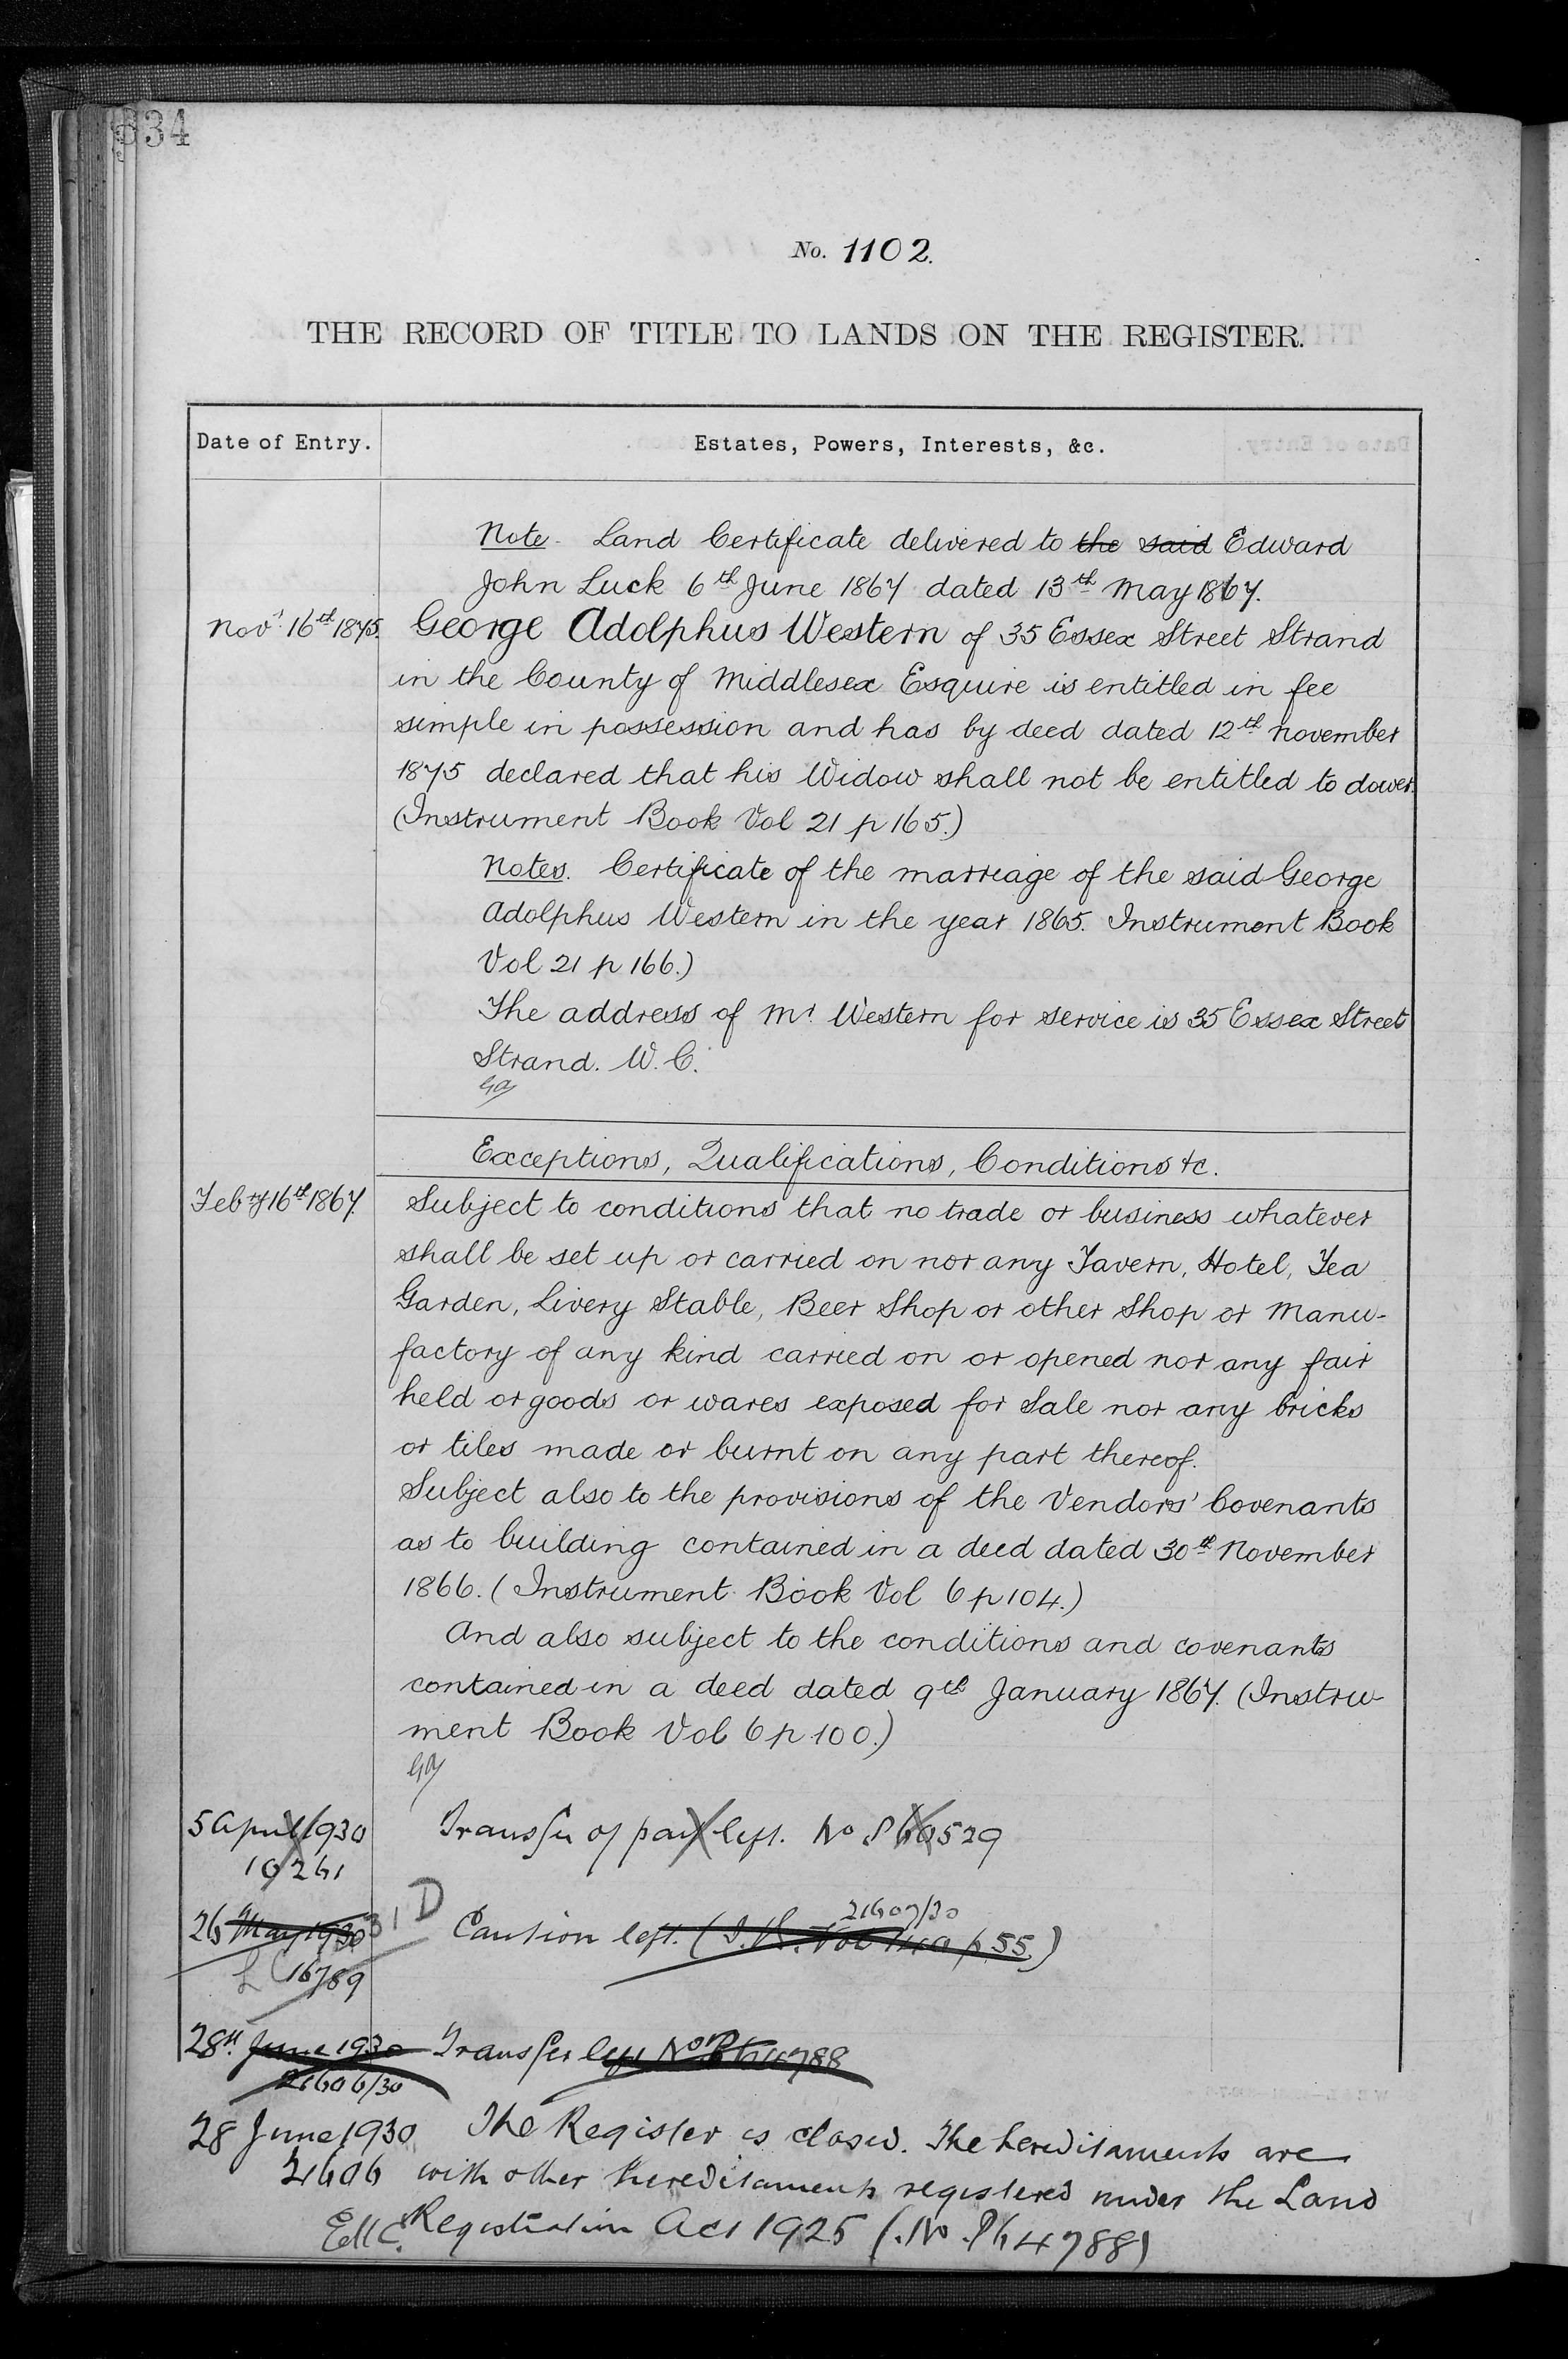 334
No. 1102.
THE RECORD OF TITLE TO LANDS ON THE REGISTER.
Date of Entry. Estates, Powers, Interests, &c.
Note. Land Certificate delivered to the said Edward
John Luck 6th June 1867 dated 13th May 1867.
Novr. 16th 1875. George Adolphus Western of 35 Essex Street Strand
in the County of Middlesex Esquire is entitled in fee
simple in possession and has by deed dated 12th November
1875 declared that his Widow shall not be entitled to dower.
(Instrument Book Vol 21 p 165.)
Notes. Certificate of the marriage of the said George
Adolphus Western in the year 1865. Instrument Book
Vol 21 p 166.)
The address of Mr. Western for service is 35 Essex Street
Strand. W. C.
Exceptions, Qualifications, Conditions &c.
Febry 16th 1867. Subject to conditions that no trade or business whatever
shall be set up or carried on nor any Tavern, Hotel, Tea
Garden, Livery Stable, Beer Shop or other Shop or Manu-
factory of any kind carried on or opened nor any fair
held or goods or wares exposed for Sale nor any bricks
or tiles made or burnt on any part thereof.
Subject also to the provisions of the Vendors' Covenants
as to building contained in a deed dated 30th November
1866. (Instrument Book Vol 6 p 104.)
And also subject to the conditions and covenants
contained in a deed dated 9th January 1867. (Instru-
ment Book Vol 6 p 100.)
5 April 1930 Transfer of part left. No
26 May 1930 Caution left.
16789
28th June 1930 Transfer left No
21606/30
28 June 1930 The Register is closed. The hereditaments are
21606 with other hereditaments registered under the Land
Registration Act 1925 (No. P64788)